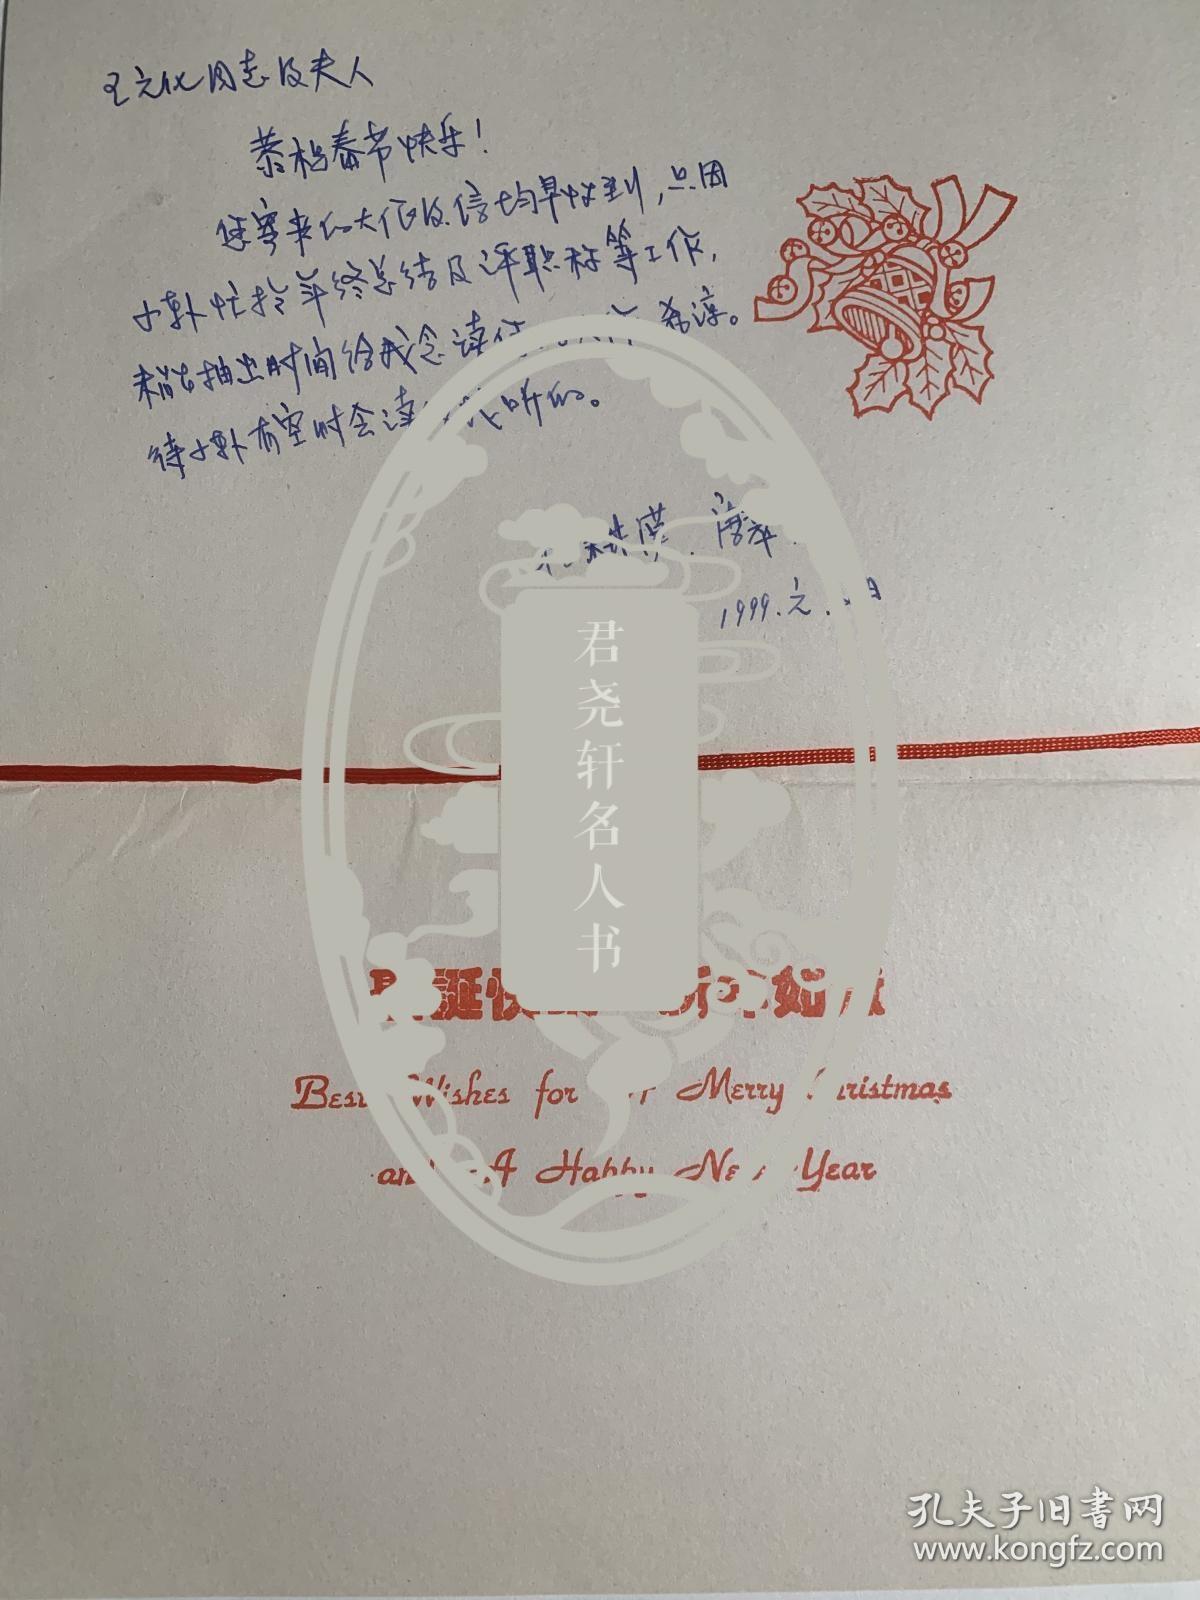 王元化同志及夫人
恭祝春节快乐！
您寄来的大作及信均早收到，只因
小朴忙于年终总结及评职称等工作，
未能抽出时间给我念读 希谅。
待小朴有空时会读 听的。
1999.元.
君尧轩名人书
诞快
Wishes for Merry
A Happy Year
孔夫子旧书网
www.kongfz.com